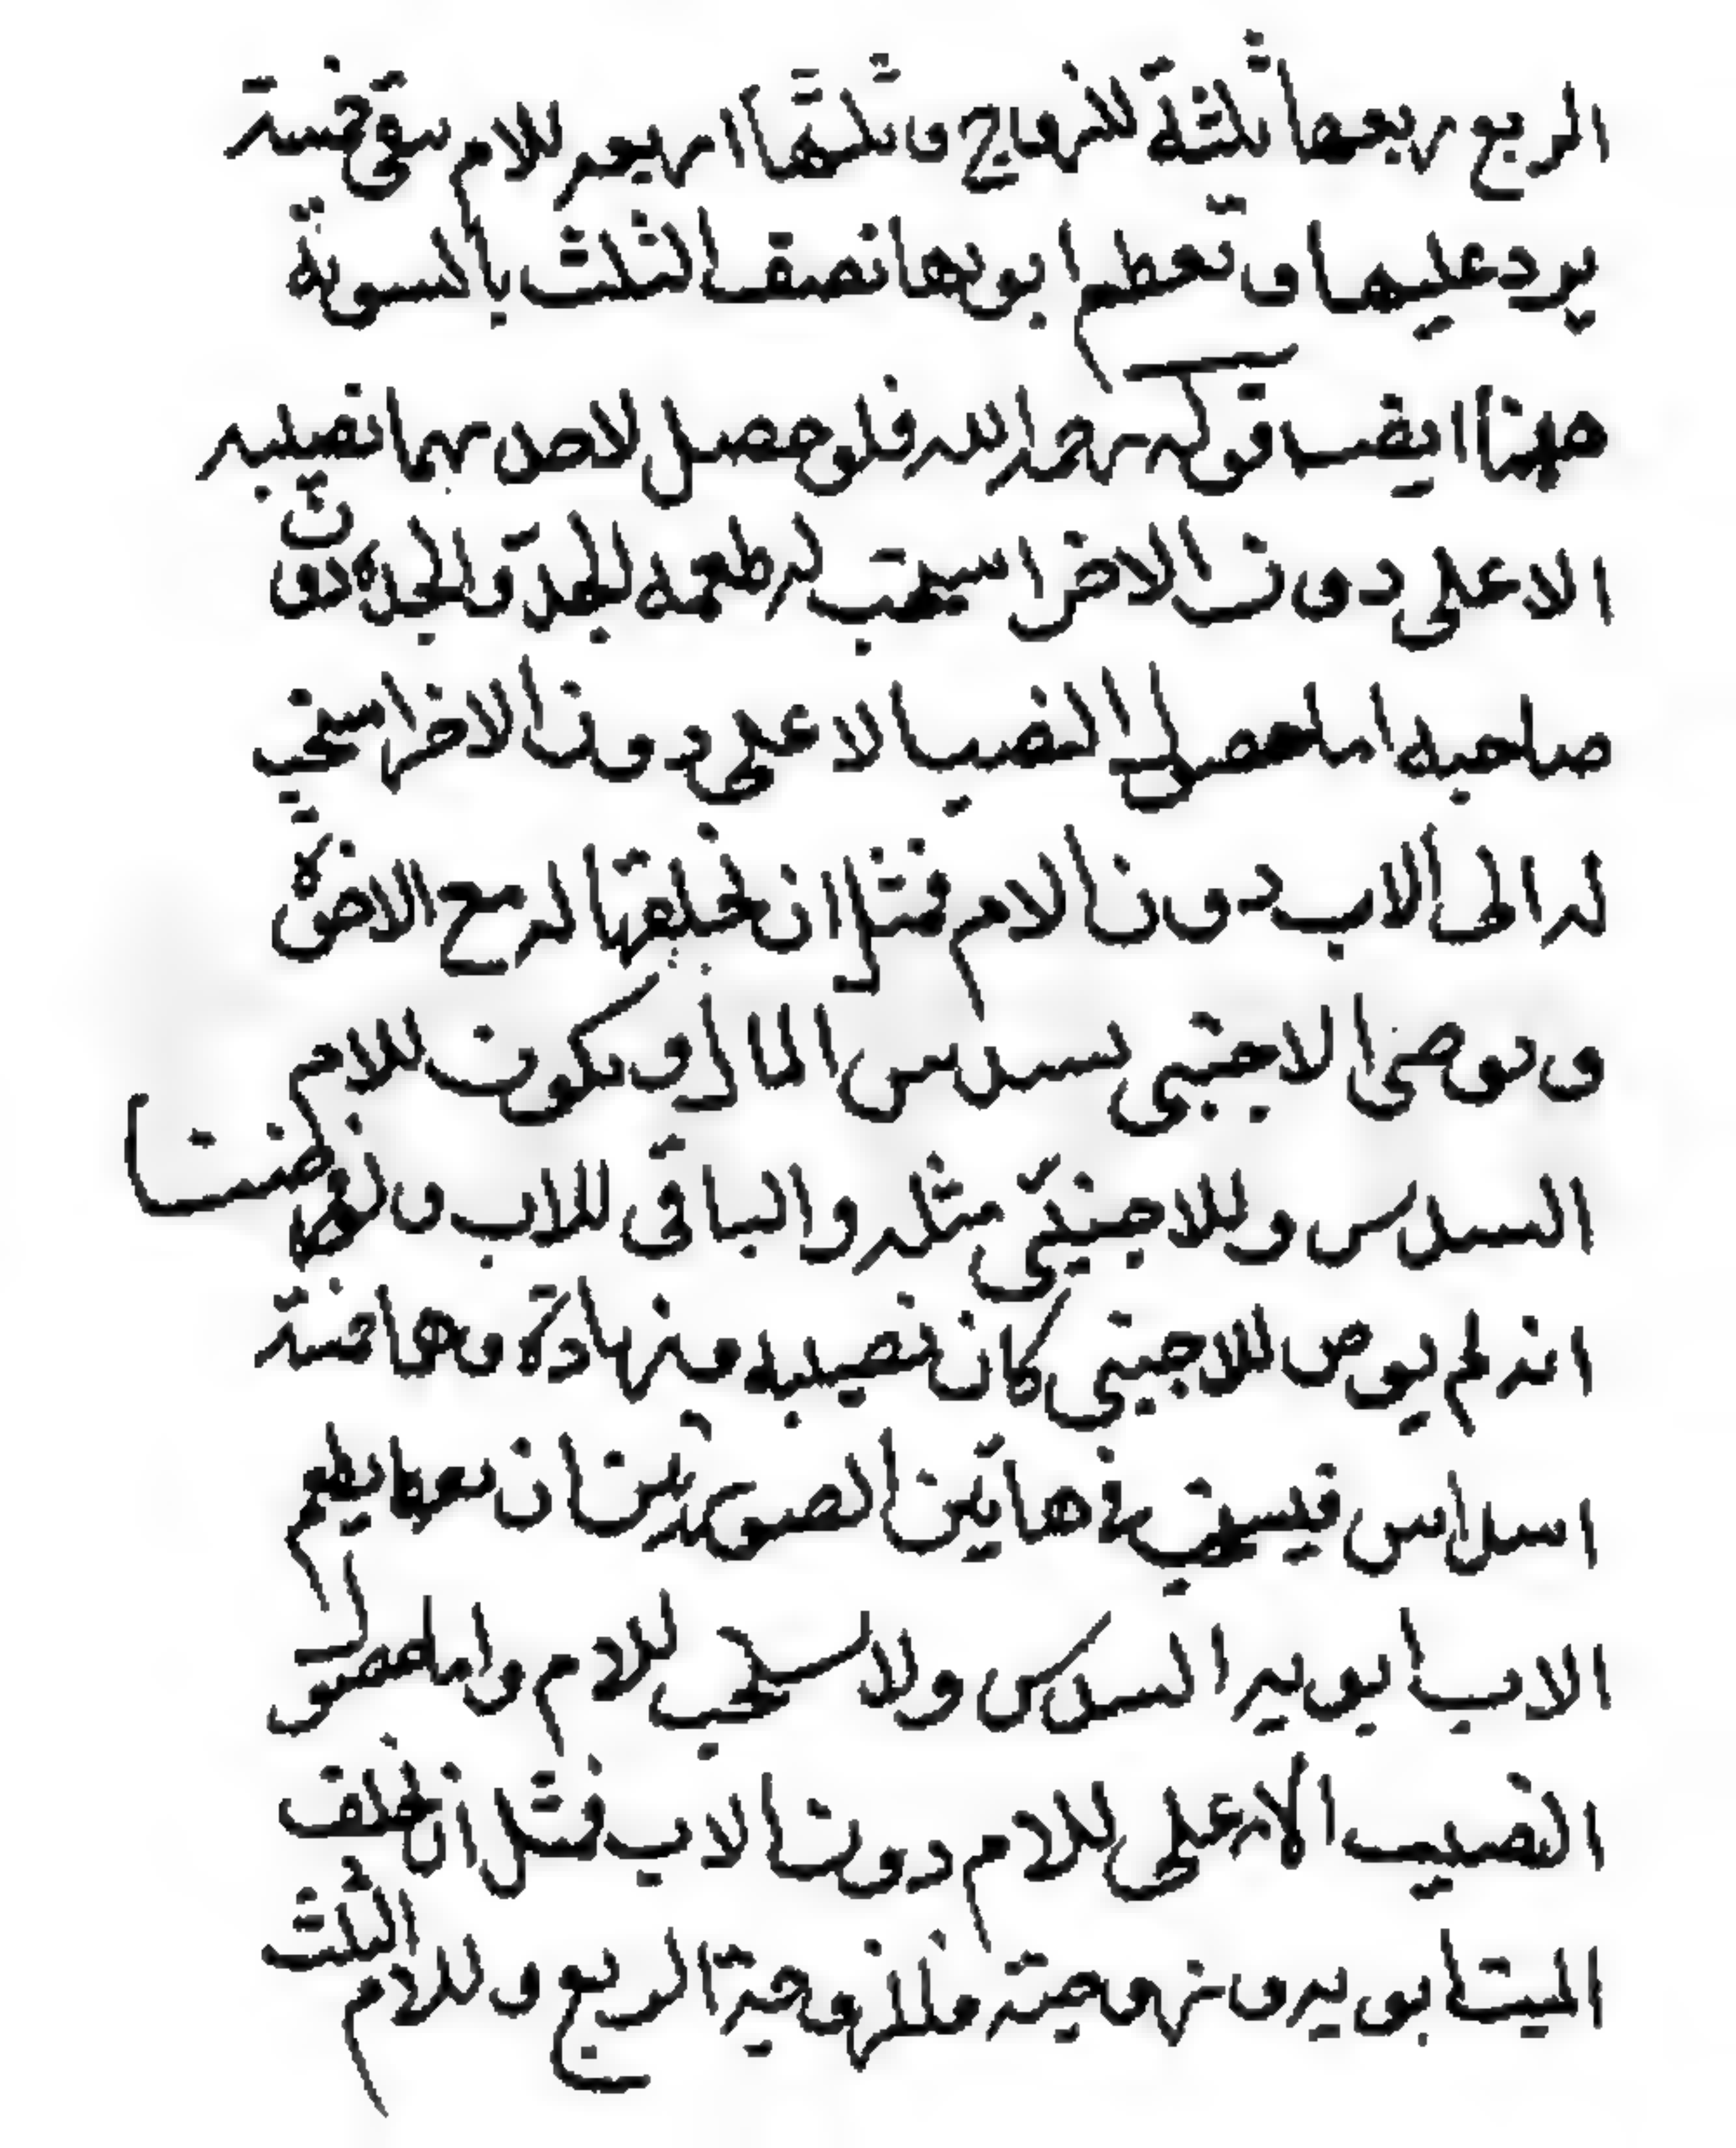 الربع ربعها ثلثة للزوج و ثلثها اربعه للام يبقى خمسة
يرد عليها و تعطم ابويها نصف الثلث بالسوية
ايضا قوله رحمه الله فلو حصل لاحدهما نصيبه
الاعلى دون الاخر استحب له طعمه الجد و الجده دون
صاحبه اما حصول النصيب الاعلى دون الاخر
له الى الاب دون الام فمثل ان تخلفهما مع الاخوة
و يوصى لاجنبى بسدس المال و يكون للام
السدس و للاجنبى مثله و الباقى للاب و لو فرضنا
انه لم يوص للاجنبى كان نصيبه و زيادة و ها خمسة
اسداس فيستحب فى هاتين الصورتين ان يطعم
الاب ابويه السدس و لا يستحب للام و اما حصول
النصيب الاعلى للام دون الاب فمثل ان تخلف
الميت ابويه و زوجته و للزوجة الربع و للام الثلث